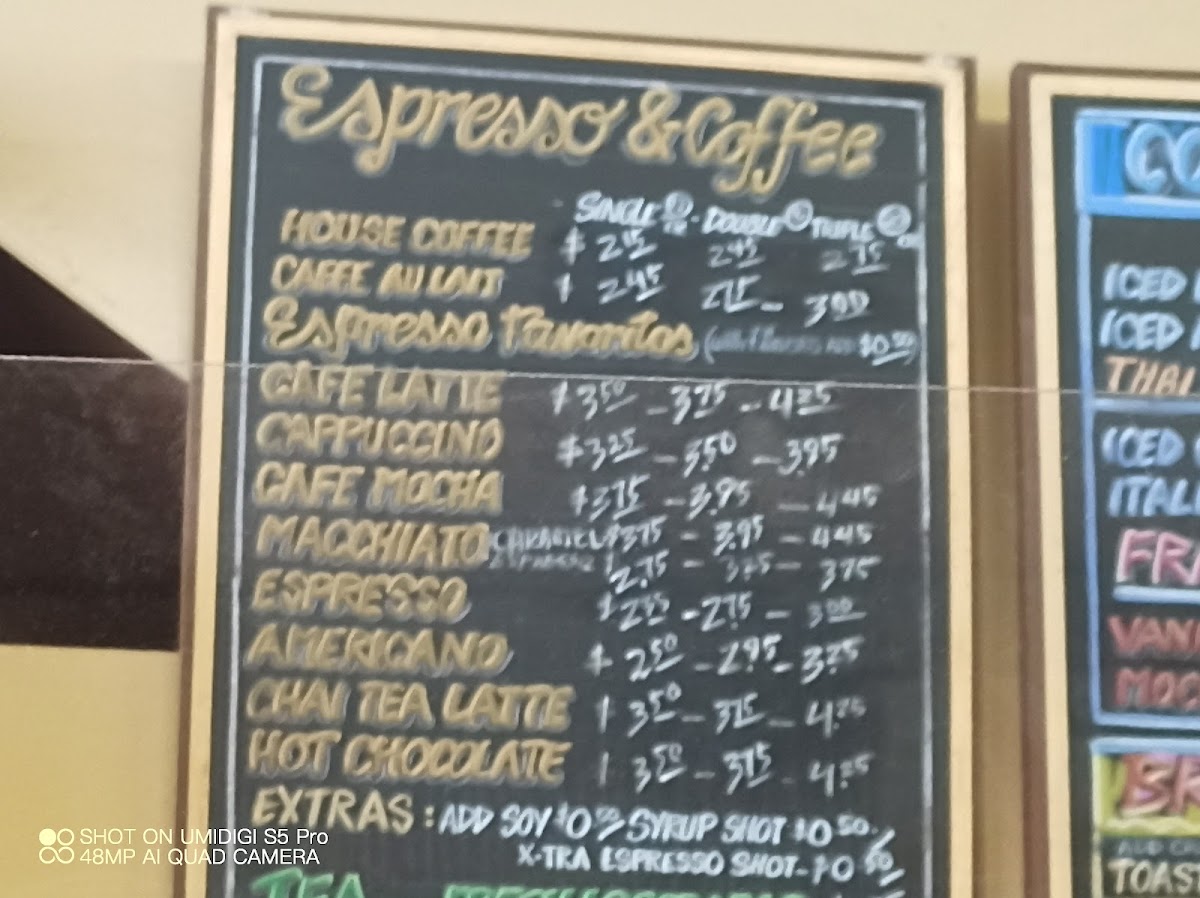 Espresso & Coffee
SINGLE DOUBLE TRIPLE
HOUSE COFFEE $ 2.45 2.75
CAFFE AU LAIT 2.45 2.75 - 3.00
Espresso Favorites $0.50
CAFE LATTE $3.50 - 3.75 - 4.25
CAPPUCCINO $3.25 - 3.50 - 3.95
CAFE MOCHA $3.75 - 3.95 - 4.45
MACCHIATO CARAMEL $3.75 - 3.95 - 4.45
2.75 - 3.75
ESPRESSO - 2.75 - 3.00
AMERICANO $ 2.50 - 2.95 - 3.25
CHAI TEA LATTE 3.50 - 3.75 - 4.25
HOT CHOCOLATE 3.50 - 3.75 - 4.25
EXTRAS: ADD SOY $0.50 / SYRUP SHOT $0.50 /
X-TRA ESPRESSO SHOT - $0.50 /
TEA
ICED
ICED
THAI
ICED
TOAST
SHOT ON UMIDIGI S5 Pro
48MP AI QUAD CAMERA